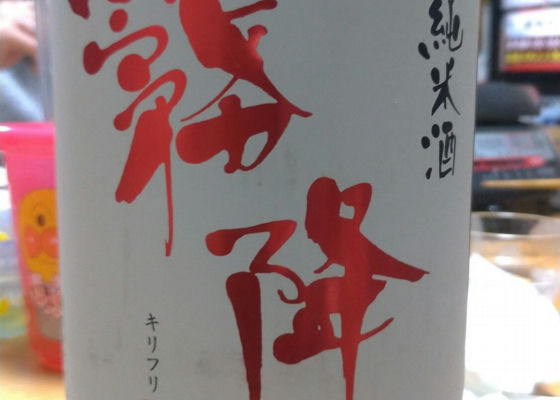 純米酒
霧降
キリフリ